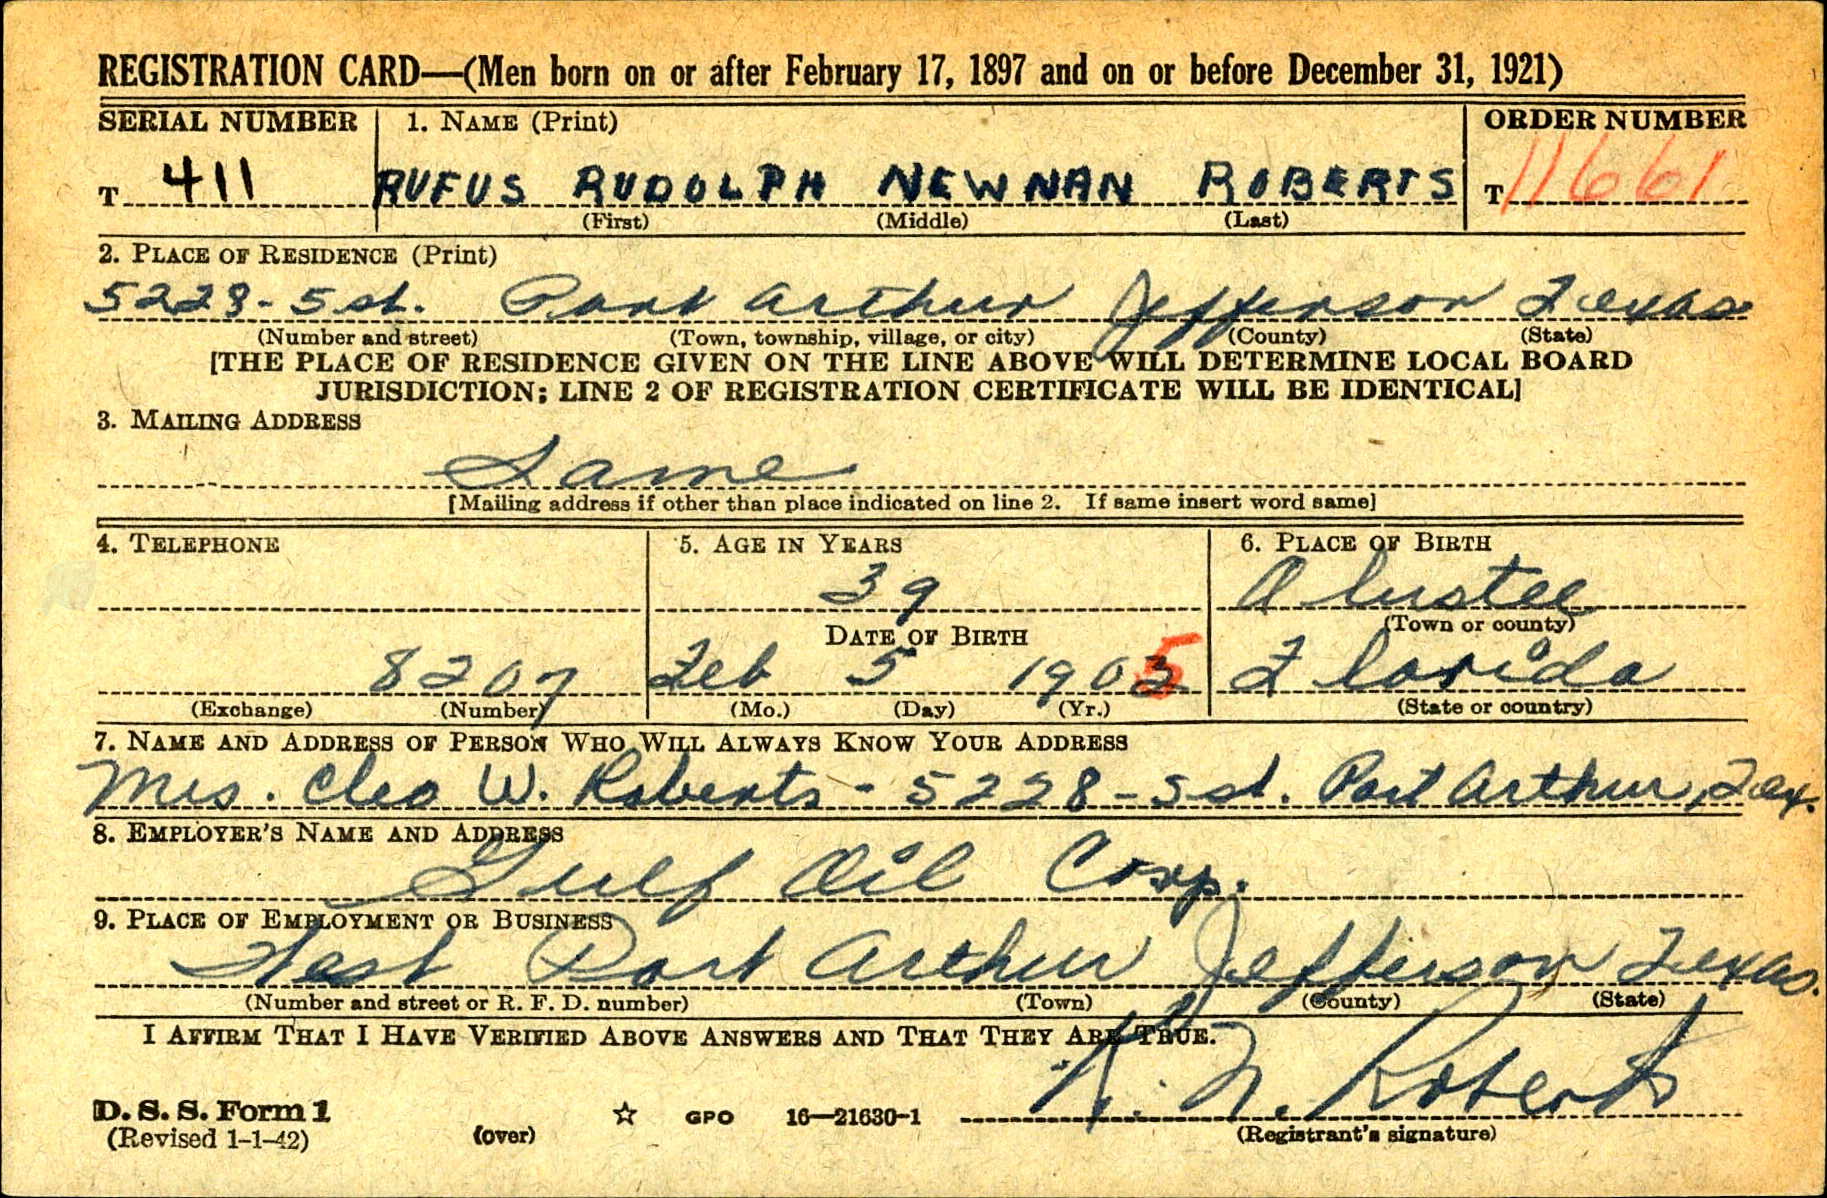 REGISTRATION CARD—(Men born on or after February 17, 1897 and on or before December 31, 1921)
SERIAL NUMBER 1. NAME (Print) ORDER NUMBER
T 411 RUFUS RUDOLPH NEWNAN ROBERTS T 11661
(First) (Middle) (Last)
2. PLACE OF RESIDENCE (Print)
5228-5 st. Port Arthur Jefferson Texas
(Number and street) (Town, township, village, or city) (County) (State)
[THE PLACE OF RESIDENCE GIVEN ON THE LINE ABOVE WILL DETERMINE LOCAL BOARD
JURISDICTION; LINE 2 OF REGISTRATION CERTIFICATE WILL BE IDENTICAL]
3. MAILING ADDRESS
Same
[Mailing address if other than place indicated on line 2. If same insert word same]
4. TELEPHONE 5. AGE IN YEARS 6. PLACE OF BIRTH
39 Olustee
DATE OF BIRTH (Town or county)
8207 Feb 5 1903 5 Florida
(Exchange) (Number) (Mo.) (Day) (Yr.) (State or country)
7. NAME AND ADDRESS OF PERSON WHO WILL ALWAYS KNOW YOUR ADDRESS
Mrs. Cleo W. Roberts - 5228-5 st. Port Arthur, Tex.
8. EMPLOYER'S NAME AND ADDRESS
Gulf Oil Corp.
9. PLACE OF EMPLOYMENT OR BUSINESS
West Port Arthur Jefferson Texas.
(Number and street or R. F. D. number) (Town) (County) (State)
I AFFIRM THAT I HAVE VERIFIED ABOVE ANSWERS AND THAT THEY ARE TRUE.
R. N. Roberts
D. S. S. Form 1
(Revised 1-1-42) (over) ☆ GPO 16—21630-1 (Registrant's signature)